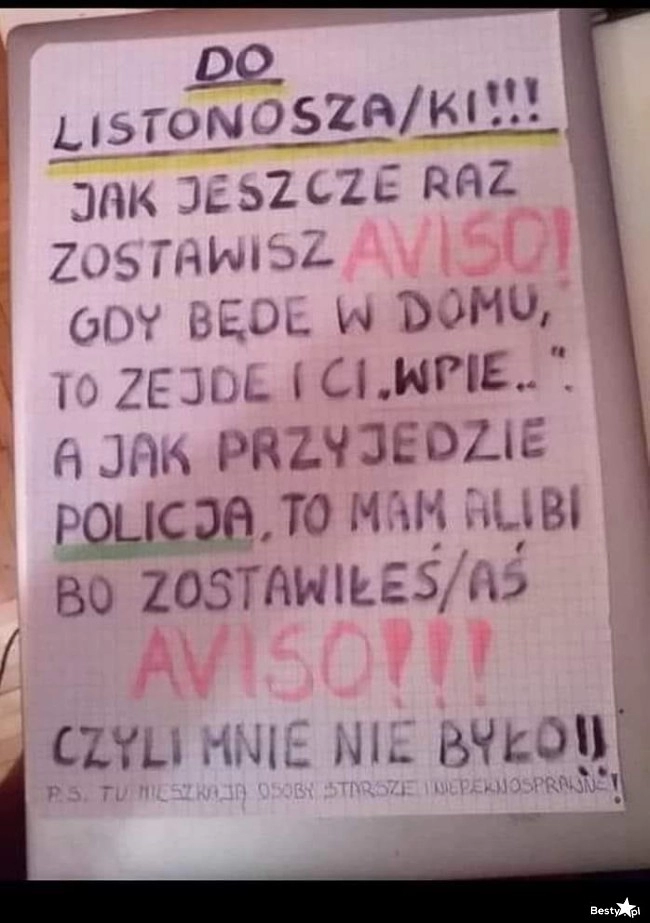 DO
LISTONOSZA/KI!!!
JAK JESZCZE RAZ
ZOSTAWISZ AVISO!
GDY BĘDE W DOMU,
TO ZEJDE I CI „WPIE..".
A JAK PRZYJEDZIE
POLICJA, TO MAM ALIBI
BO ZOSTAWIŁEŚ/AŚ
AVISO!!!
CZYLI MNIE NIE BYŁO!!
P.S. TU MIESZKAJĄ OSOBY STARSZE I NIEPEŁNOSPRAWNE!
Besty.pl